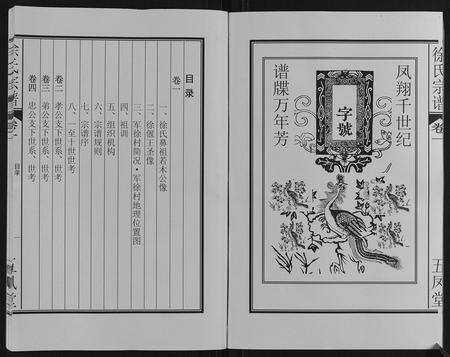 徐氏宗谱
卷一
五凤堂
凤翔千世纪
字號
谱牒万年芳
目录
卷一
一、徐氏鼻祖若木公像
二、徐偃王圣像
三、军徐村简况·军徐村地理位置图
四、祖训
五、组织机构
六、宗谱规则
七、宗谱序
八、一至十世世考
卷二 孝公支下世系、世考
卷三 弟公支下世系、世考
卷四 忠公支下世系、世考
徐氏宗谱
卷一
目录
一
五凤堂